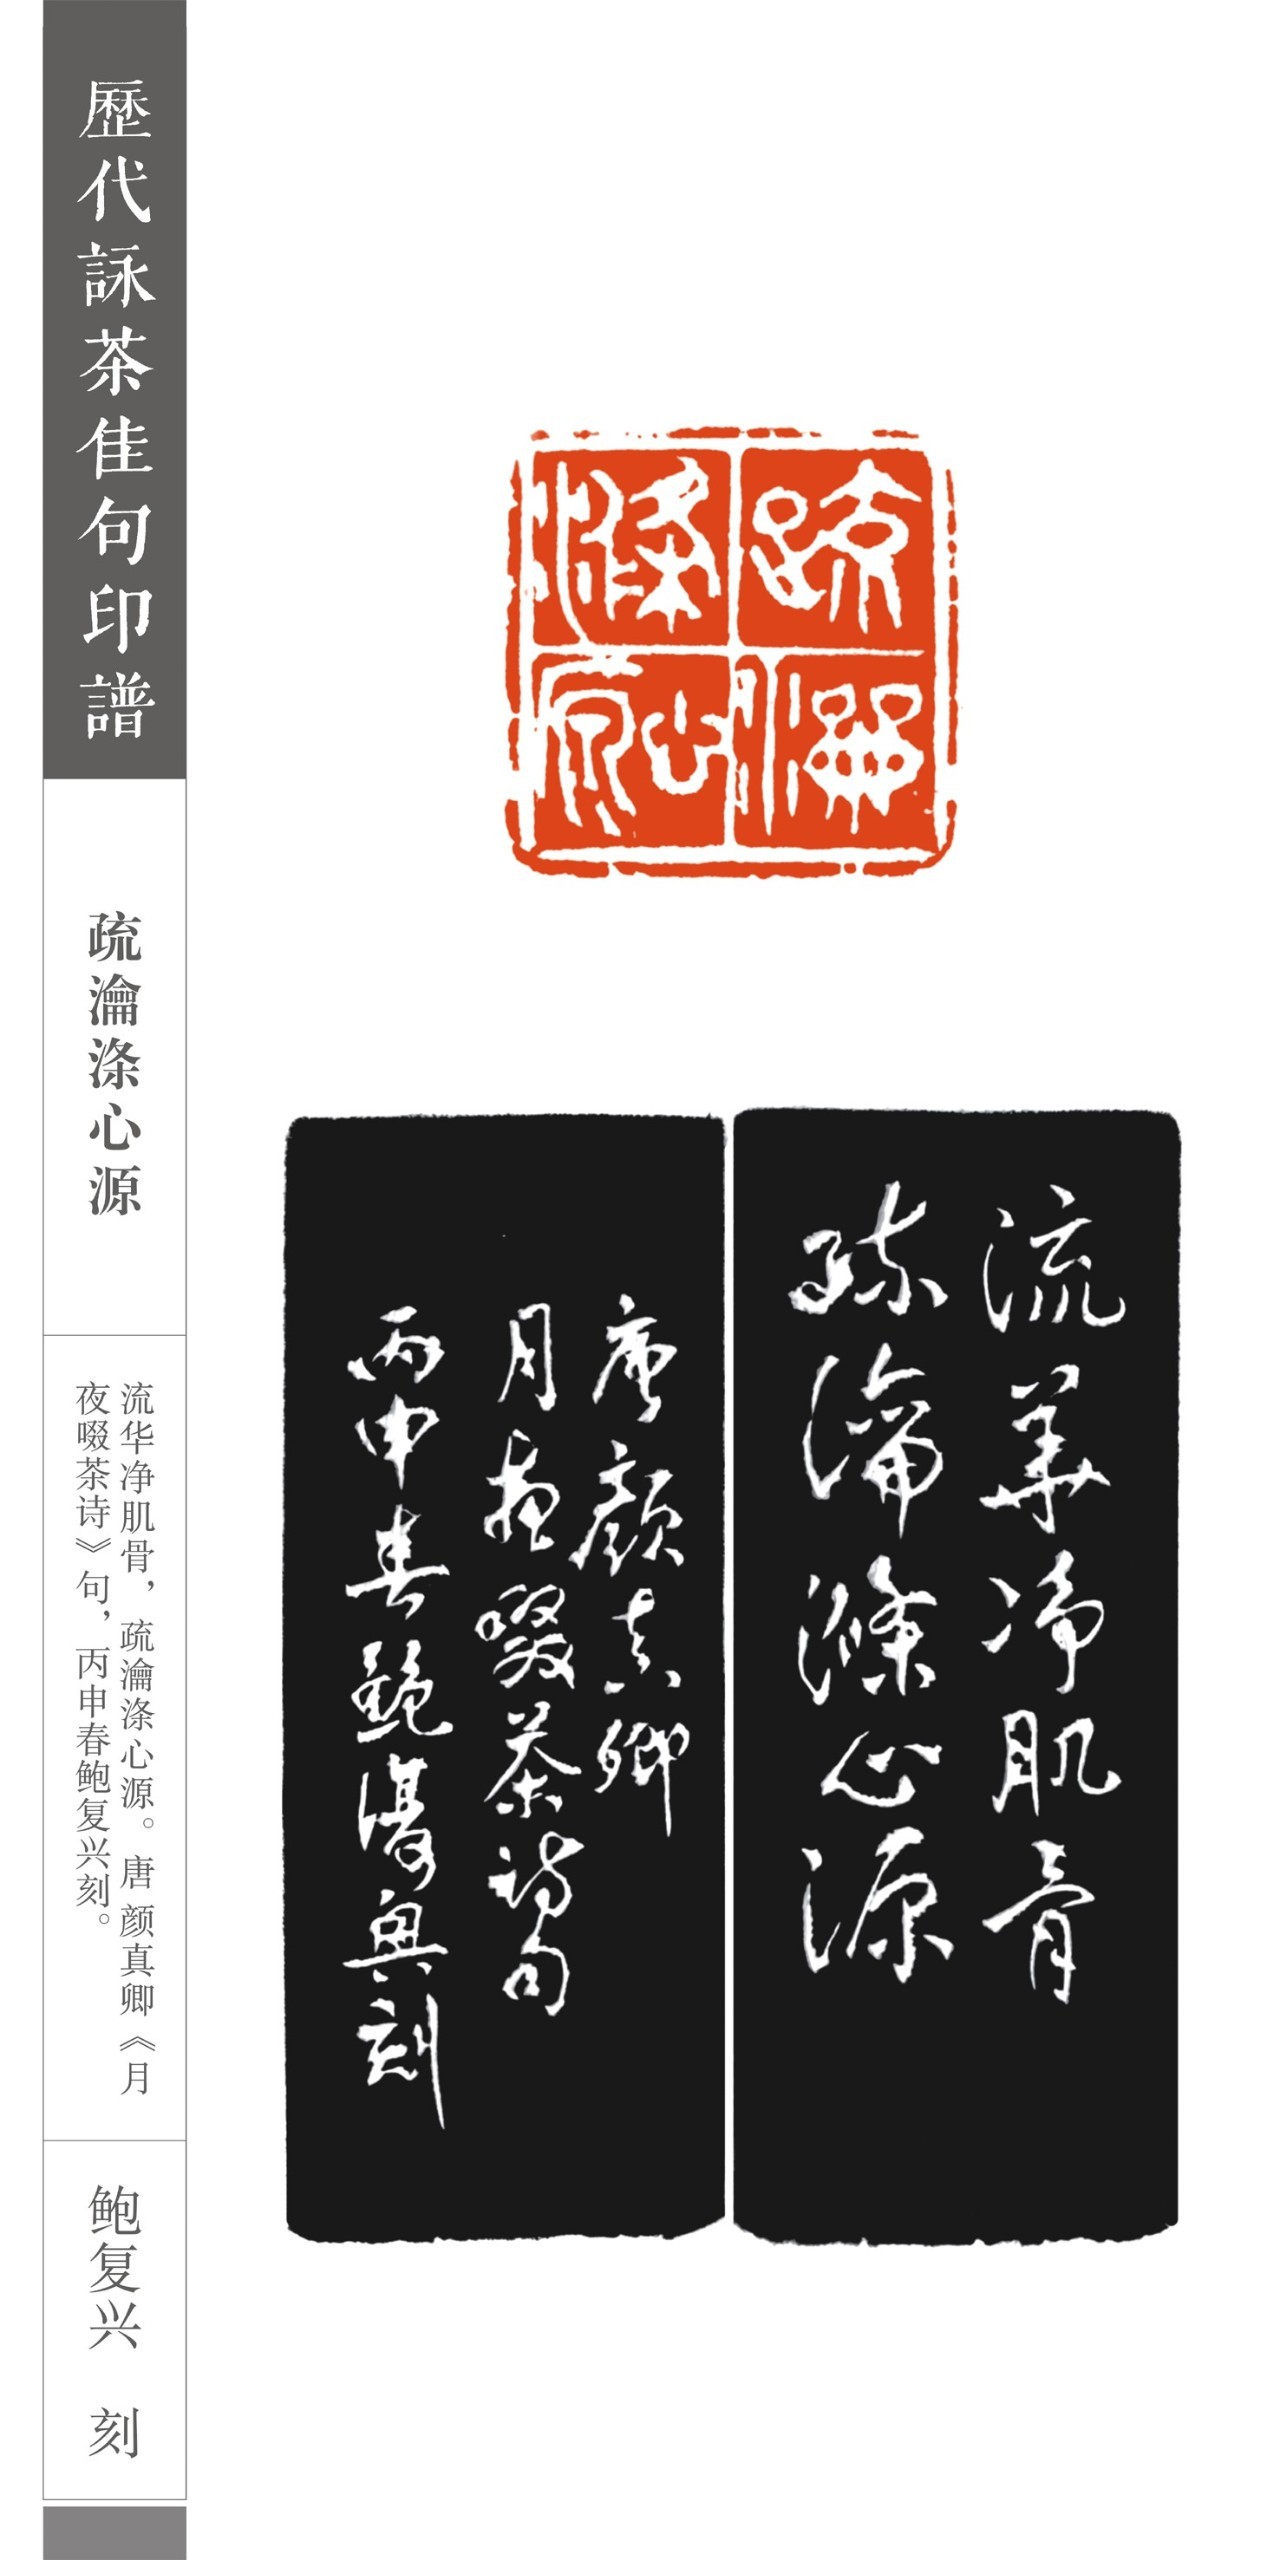 歷代詠茶佳句印譜
疏瀹涤心源
流华净肌骨，疏瀹涤心源。唐 颜真卿《月
夜啜茶诗》句，丙申春鲍复兴刻。
鲍复兴 刻
疏瀹
滌心原
流華净肌骨
疏瀹滌心源
唐顏真卿
月夜啜茶詩句
丙申春鮑復興刻